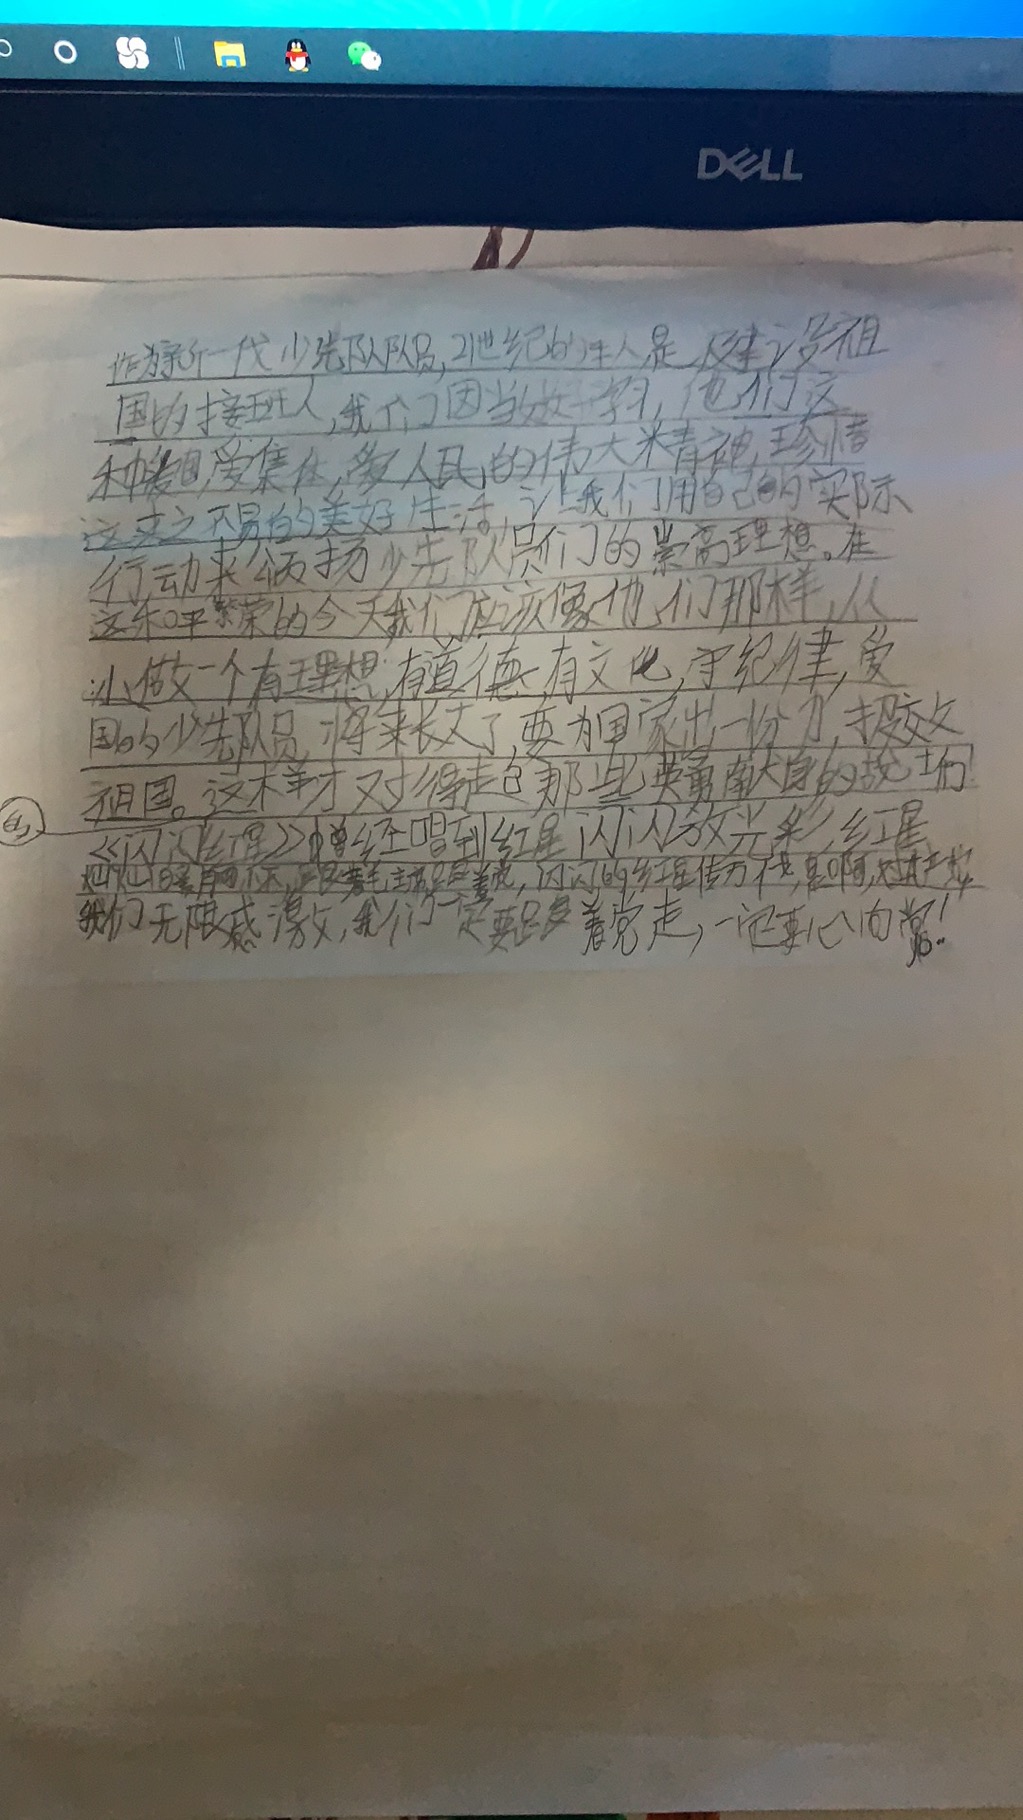 DELL
作为新一代少先队队员,21世纪的主人是建设祖
国的接班人,我们因当好好学习,他们这
种爱集体,爱人民,的伟大精神,珍惜
这来之不易的美好生活,让我们用自己的实际
行动来颂扬少先队员们的崇高理想。在
这和平繁荣的今天我们应该像他们那样,从
小做一个有理想,有道德,有文化,守纪律,爱
国的少先队员,将来长大了,要为国家出一份力,报效
祖国。这样才对得起那些英勇的战士们!
《闪闪红星》曾经唱到红星闪闪放光彩,红星
闪闪的红星传万代,是啊,对
我们无限感激,我们一定要跟着党走,一定要心向党!